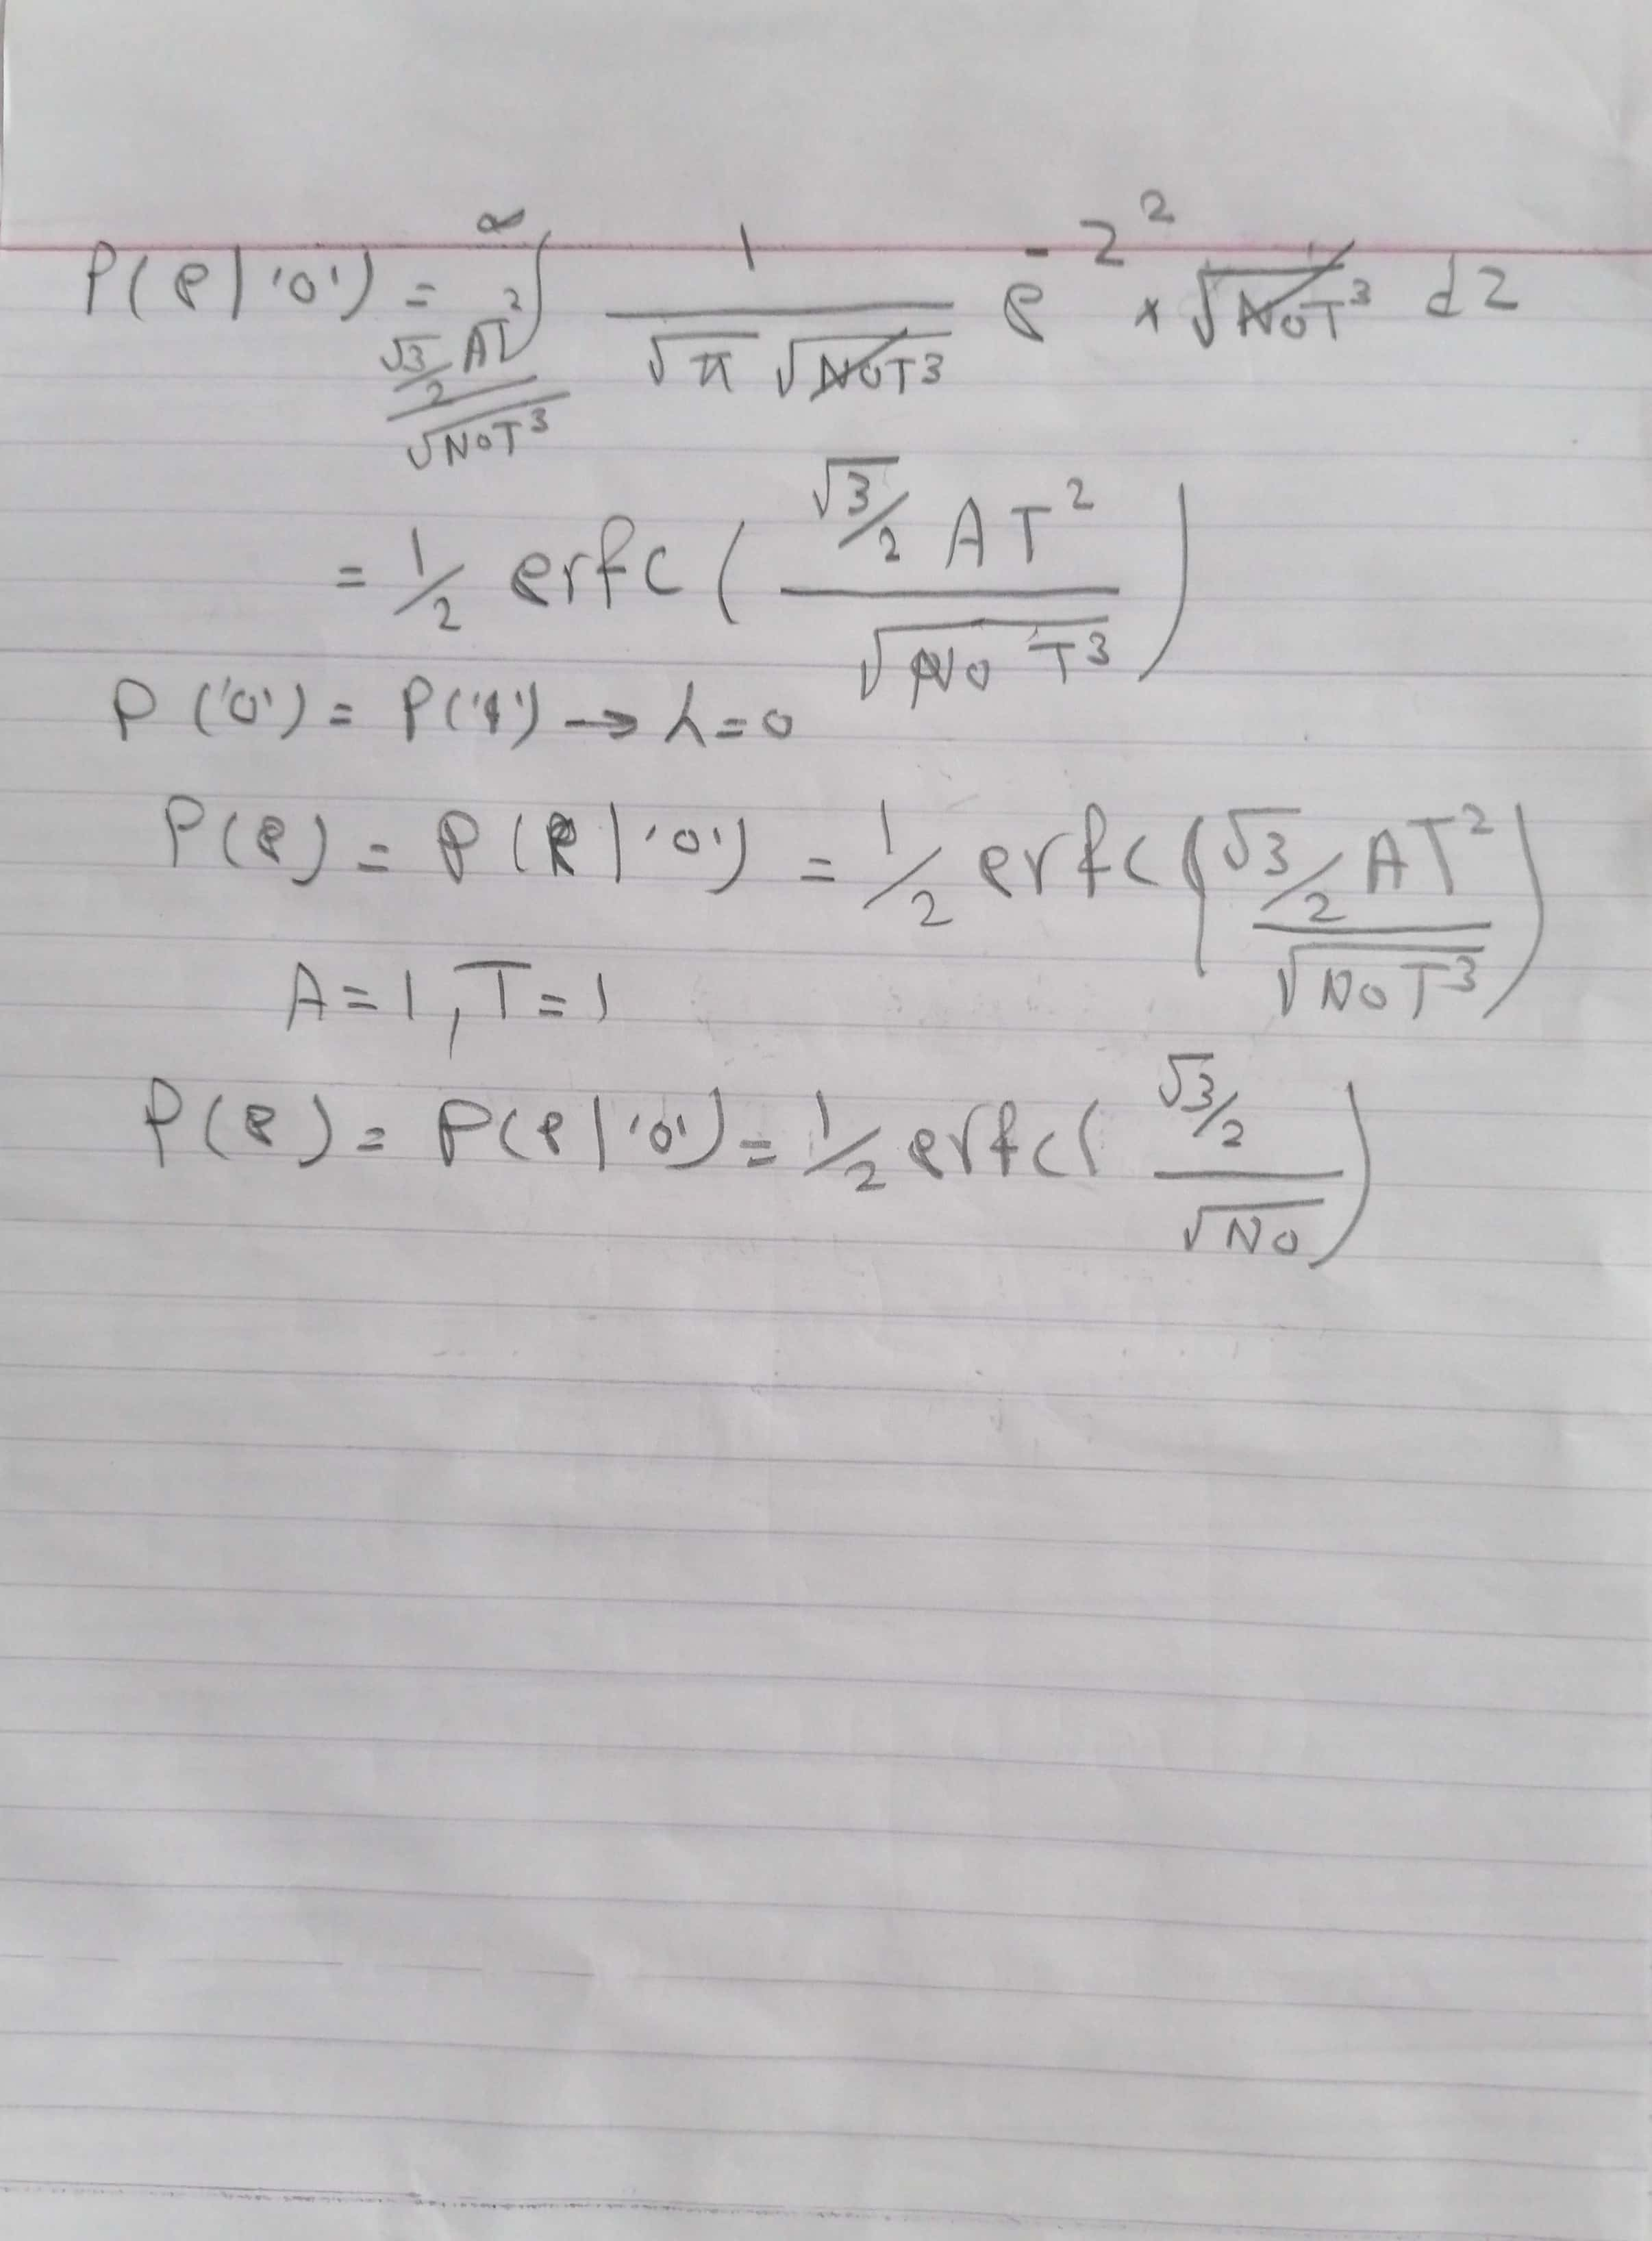 P(e|'0') = ∫_{(√3/2 AT²)/√(NoT³)}^{∞} 1/(√π √(NoT³)) e^{-z²} × √(NoT³) dz
= 1/2 erfc( (√3/2 AT²)/√(No T³) )
P('0') = P('1') → λ=0
P(e) = P(e|'0') = 1/2 erfc( (√3/2 AT²)/√(NoT³) )
A=1, T=1
P(e) = P(e|'0') = 1/2 erfc( (√3/2)/√No )